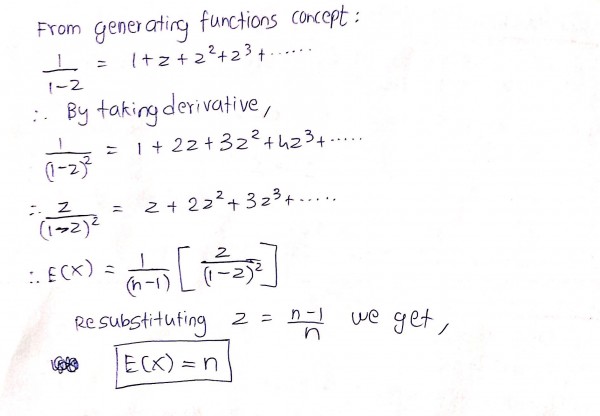 From generating functions concept:
1/(1-z) = 1+z+z²+z³+......
∴ By taking derivative,
1/(1-z)² = 1+2z+3z²+4z³+.....
∴ z/(1-z)² = z+2z²+3z³+.....
∴ E(X) = 1/(n-1) [ z/(1-z)² ]
Resubstituting z = (n-1)/n we get,
E(X) = n